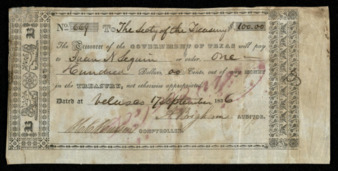 No. 667 To The Secty of the Treasury $ 100.00
The Treasurer of the GOVERNMENT OF TEXAS will pay
to Juan N. Seguin or order One
Hundred Dollars 00 Cents, out of any money
in the TREASURY, not otherwise appropriated.
Dated at Velasco 17 September 1836
AUDITOR.
COMPTROLLER.